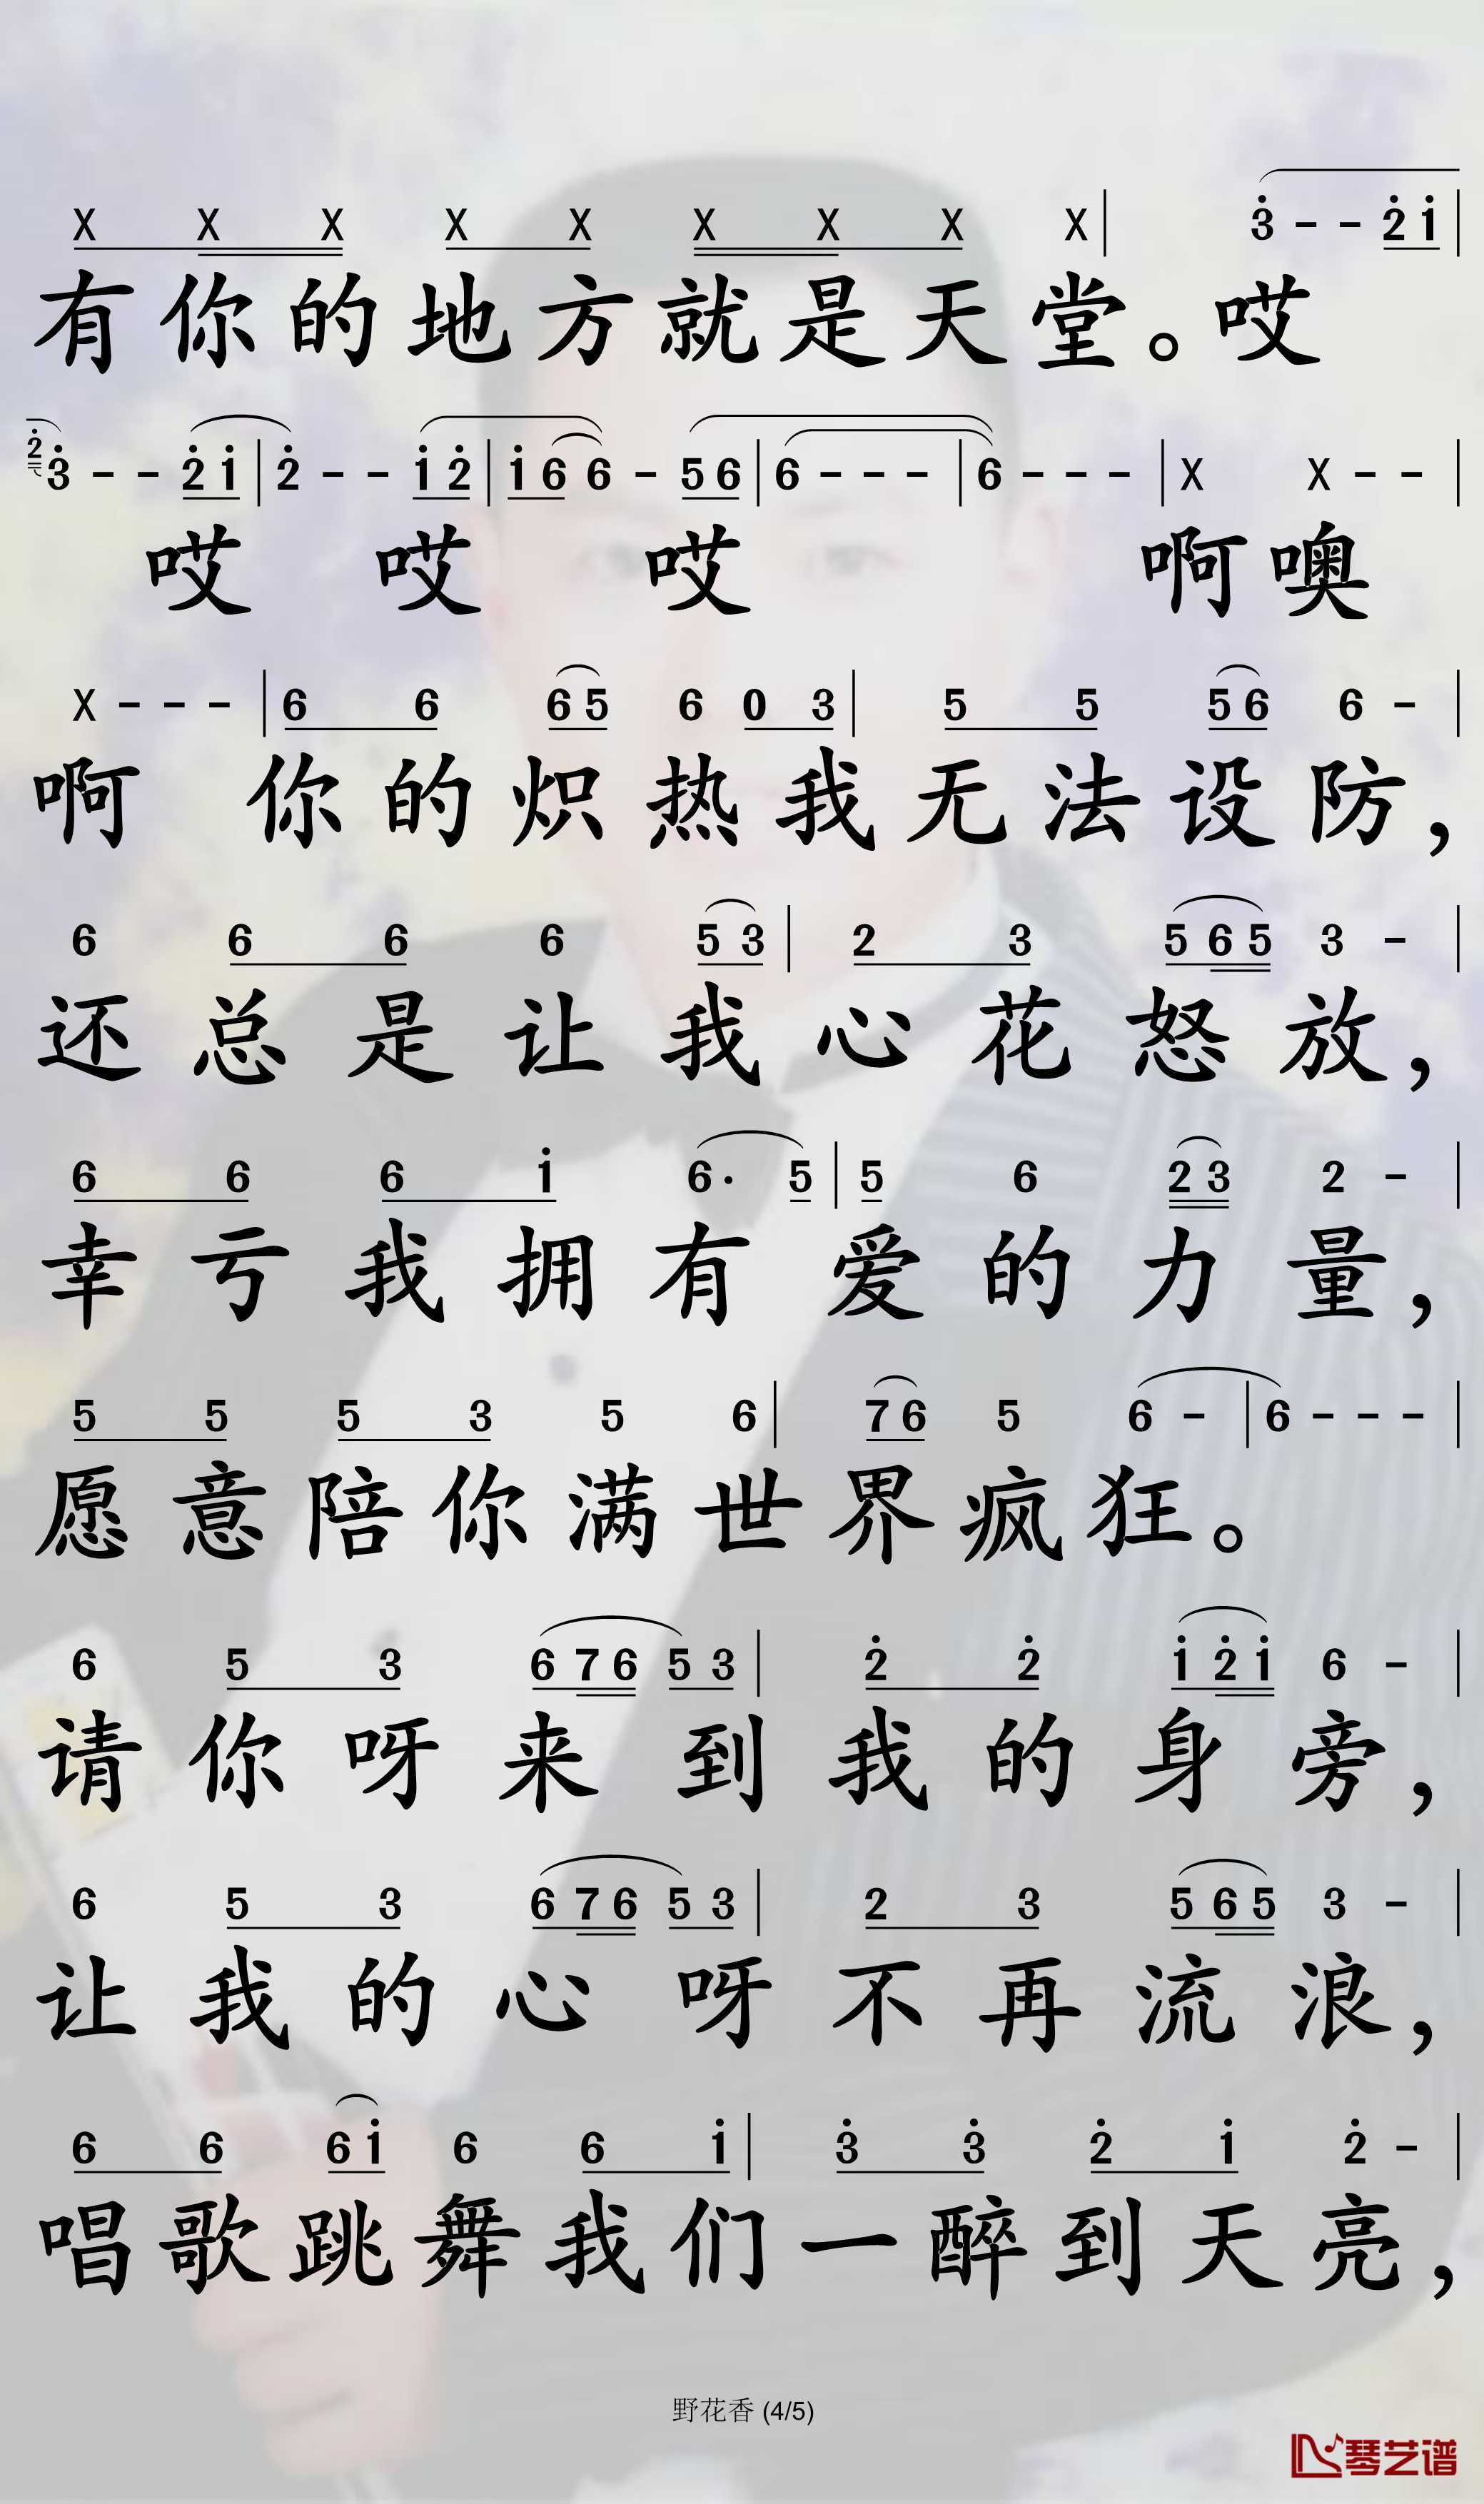 X X X X X X X X X | 3̇ - - 2̇ 1̇ |
有你的地方就是天堂。哎
2̇ 3̇ - - 2̇ 1̇ | 2̇ - - 1̇ 2̇ | 1̇ 6 6 - 5 6 | 6 - - - | 6 - - - | X X - - |
哎 哎 哎 啊噢
X - - - | 6 6 6 5 6 0 3 | 5 5 5 6 6 - |
啊 你的炽热我无法设防，
6 6 6 6 5 3 | 2 3 5 6 5 3 - |
还总是让我心花怒放，
6 6 6 1̇ 6· 5 | 5 6 2 3 2 - |
幸亏我拥有爱的力量，
5 5 5 3 5 6 | 7 6 5 6 - | 6 - - - |
愿意陪你满世界疯狂。
6 5 3 6 7 6 5 3 | 2̇ 2̇ 1̇ 2̇ 1̇ 6 - |
请你呀来到我的身旁，
6 5 3 6 7 6 5 3 | 2 3 5 6 5 3 - |
让我的心呀不再流浪，
6 6 6 1̇ 6 6 1̇ | 3̇ 3̇ 2̇ 1̇ 2̇ - |
唱歌跳舞我们一醉到天亮，
野花香 (4/5)
琴艺谱